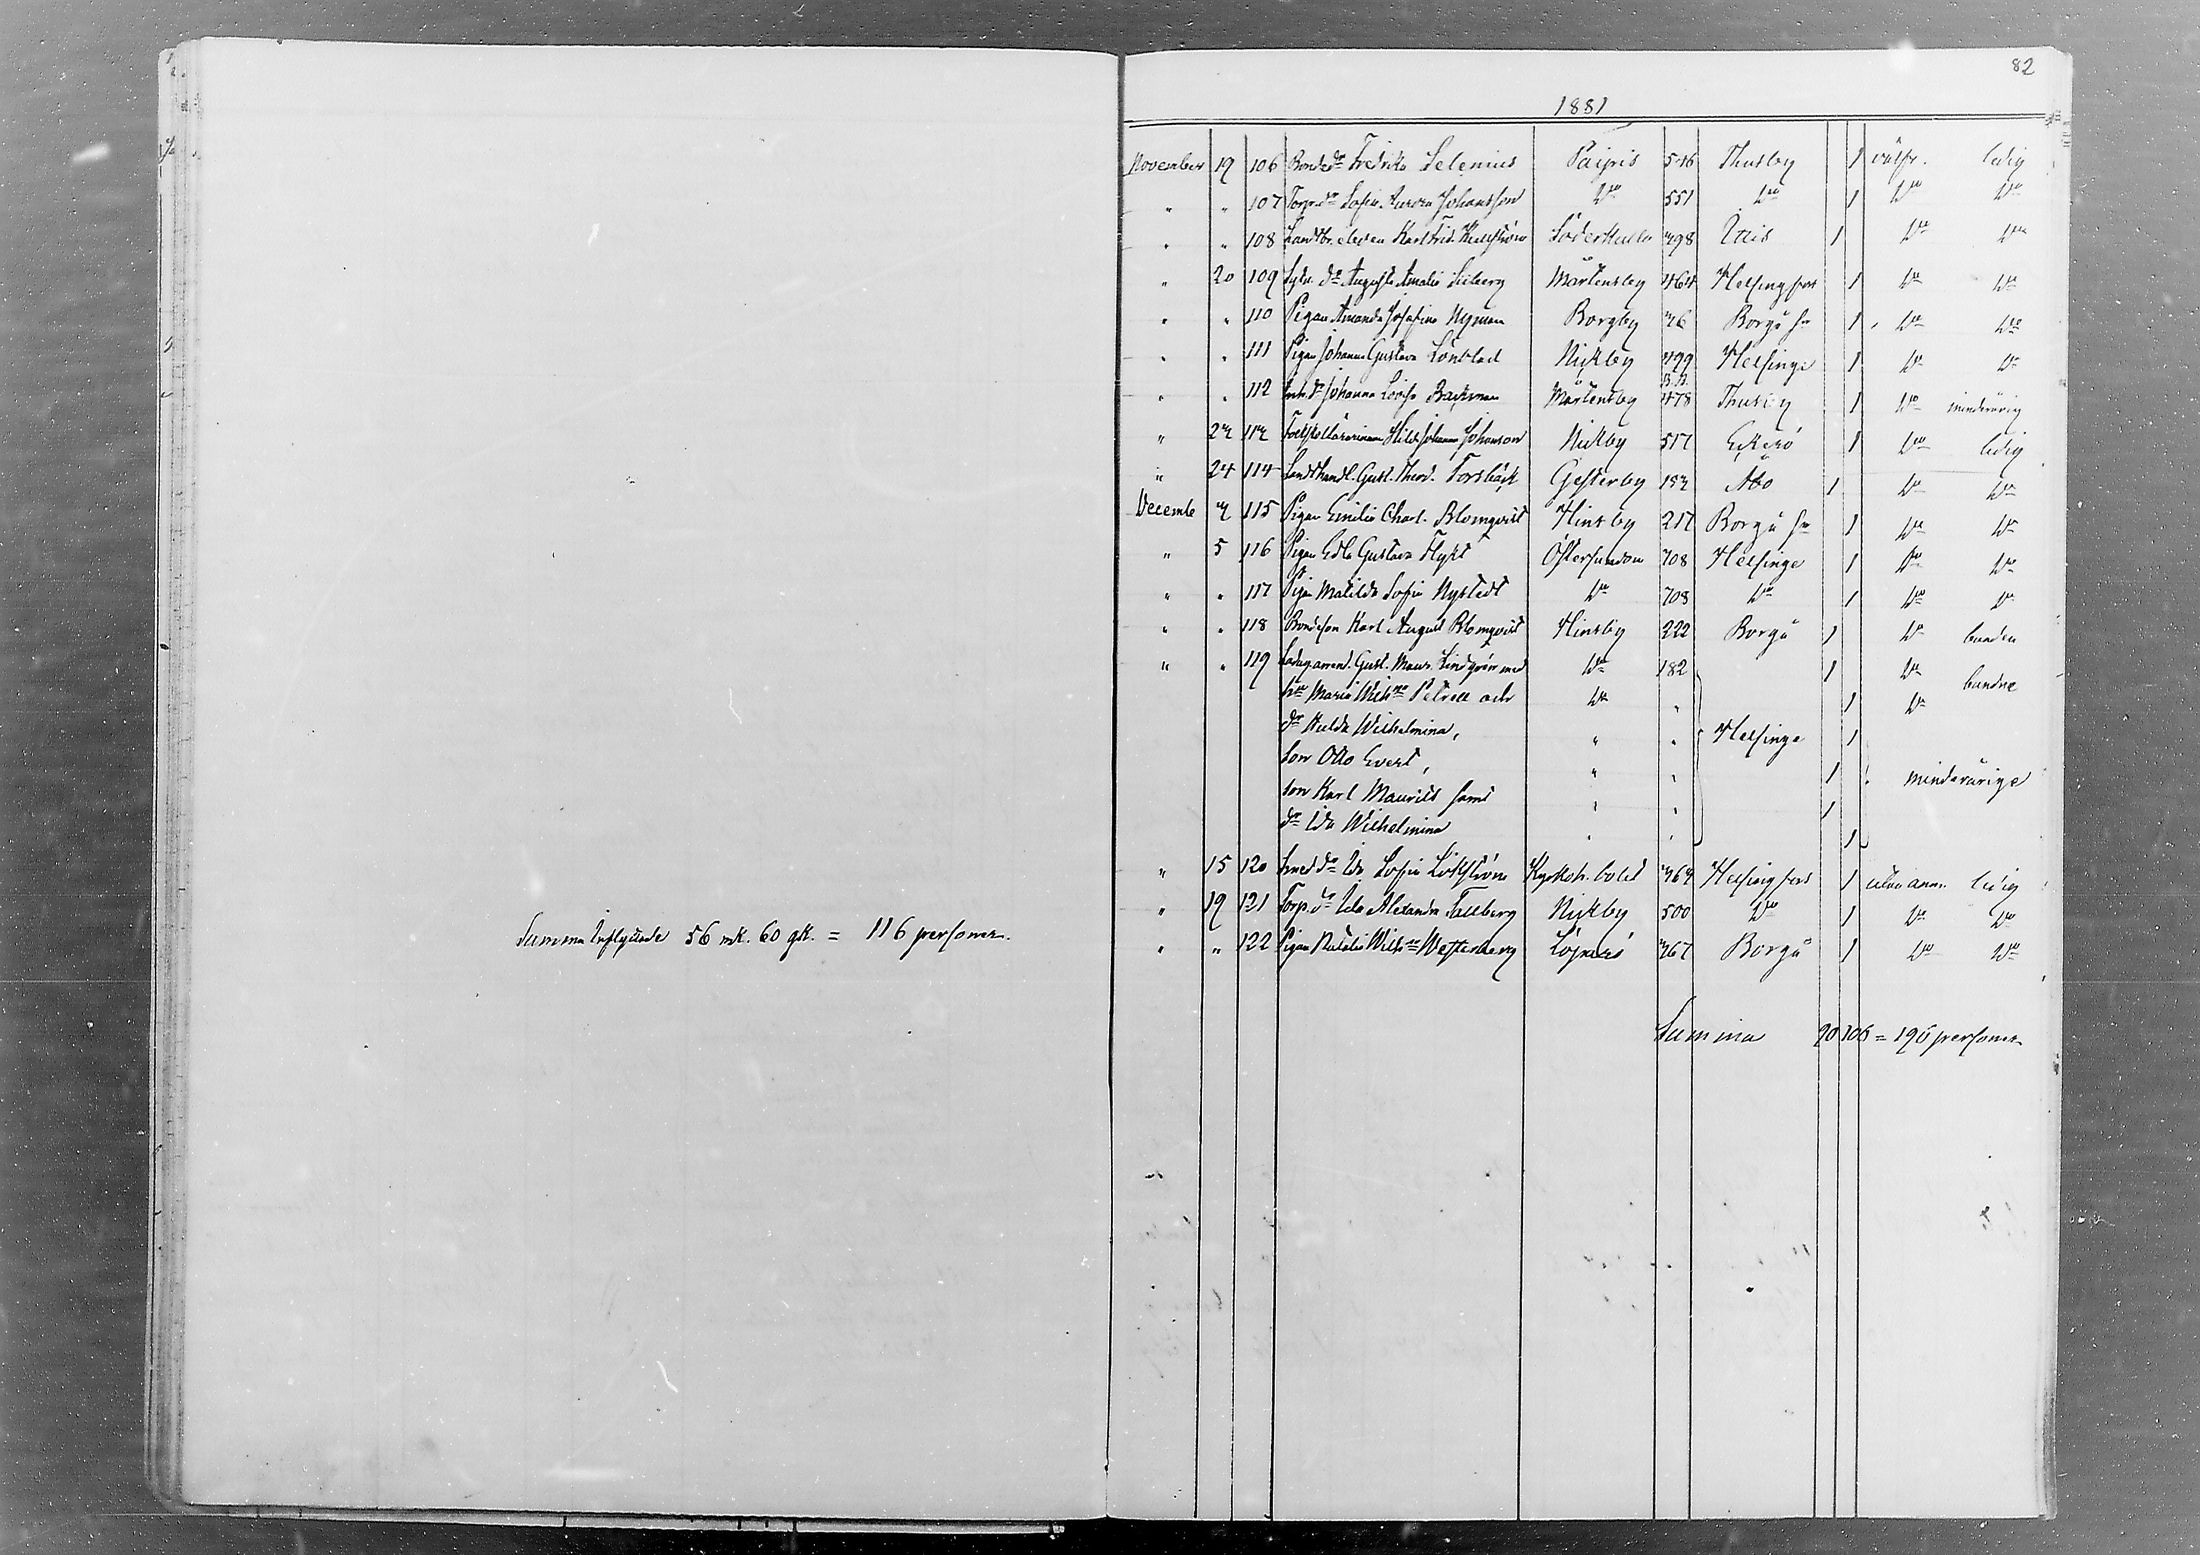 Summa Inflyttade 56 mk. 60 pk. = 116 personer.
82
1881
November 19 106 Bonded:r Fredrika Selenius Paipis 546 Thusby 1 välfr. ledig
" " 107 Torp.d:r Sofia Aurora Johansson D:o 551 D:o 1 D:o D:o
" " 108 Landtbr. eleven Karl Frid. Söderkulla 398 Ittis 1 D:o D:o
" 20 109 d:r Augusta Amalia Mårtensby 464 Helsingfors 1 D:o D:o
" " 110 Pigan Amanda Josefina Nyman Borgby 36 Borgå sn 1 D:o D:o
" " 111 Pigan Johanna Gustava Lönblad Nickby 499 Helsinge 1 D:o D:o
" " 112 Inh.d:r Johanna Lovisa Backman Mårtensby 478 Thusby 1 D:o minderårig
" 23 113 Hilda Johanna Johanson Nickby 517 Eckerö 1 D:o ledig
" 24 114 Landthandl. Gust. Theod. Forsbäck Gesterby 153 Åbo 1 D:o D:o
Decemb 3 115 Pigan Emilia Charl. Blomqvist Hinsby 217 Borgå sn 1 D:o D:o
" 5 116 Pigan Edla Gustava Flykt Östersundom 708 Helsinge 1 D:o D:o
" " 117 Pigan Matilda Sofia Nystedt D:o 708 D:o 1 D:o D:o
" " 118 Bondeson Karl August Blomqvist Hinsby 222 Borgå 1 D:o bunden
" " 119 Ladug.arrend. Gust. Maur. Lindgrén med D:o 182 1 D:o bundne
h:u Maria Wilh:na Petrell och D:o " 1 D:o
d:r Hulda Wilhelmina, " " Helsinge 1
son Otto Evert, " " 1 minderårige
son Karl Maurits samt " " 1
d:r Ida Wilhelmina " " 1
" 15 120 Smed d:r Ida Sofia Lökström Kyrkoh. bolet 364 Helsingfors 1 utan anm. ledig
" 19 121 Torp. d:r Ida Alexandra Tallberg Nickby 500 D:o 1 D:o D:o
" " 122 Pigan Natalia Wilh:na Westerberg Löpnäs 367 Borgå 1 D:o D:o
Summa 90 106 = 196 personer